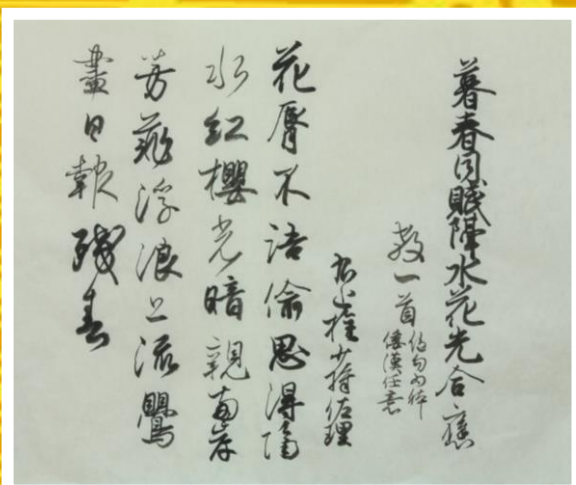 暮春同賦隔水花光合應
教一首
絶句為體
倭漢任意
右近權少將佐理
花脣不語偸思得隔
水紅櫻光暗親兩岸
芳菲浮浪上流鶯
盡日報殘春